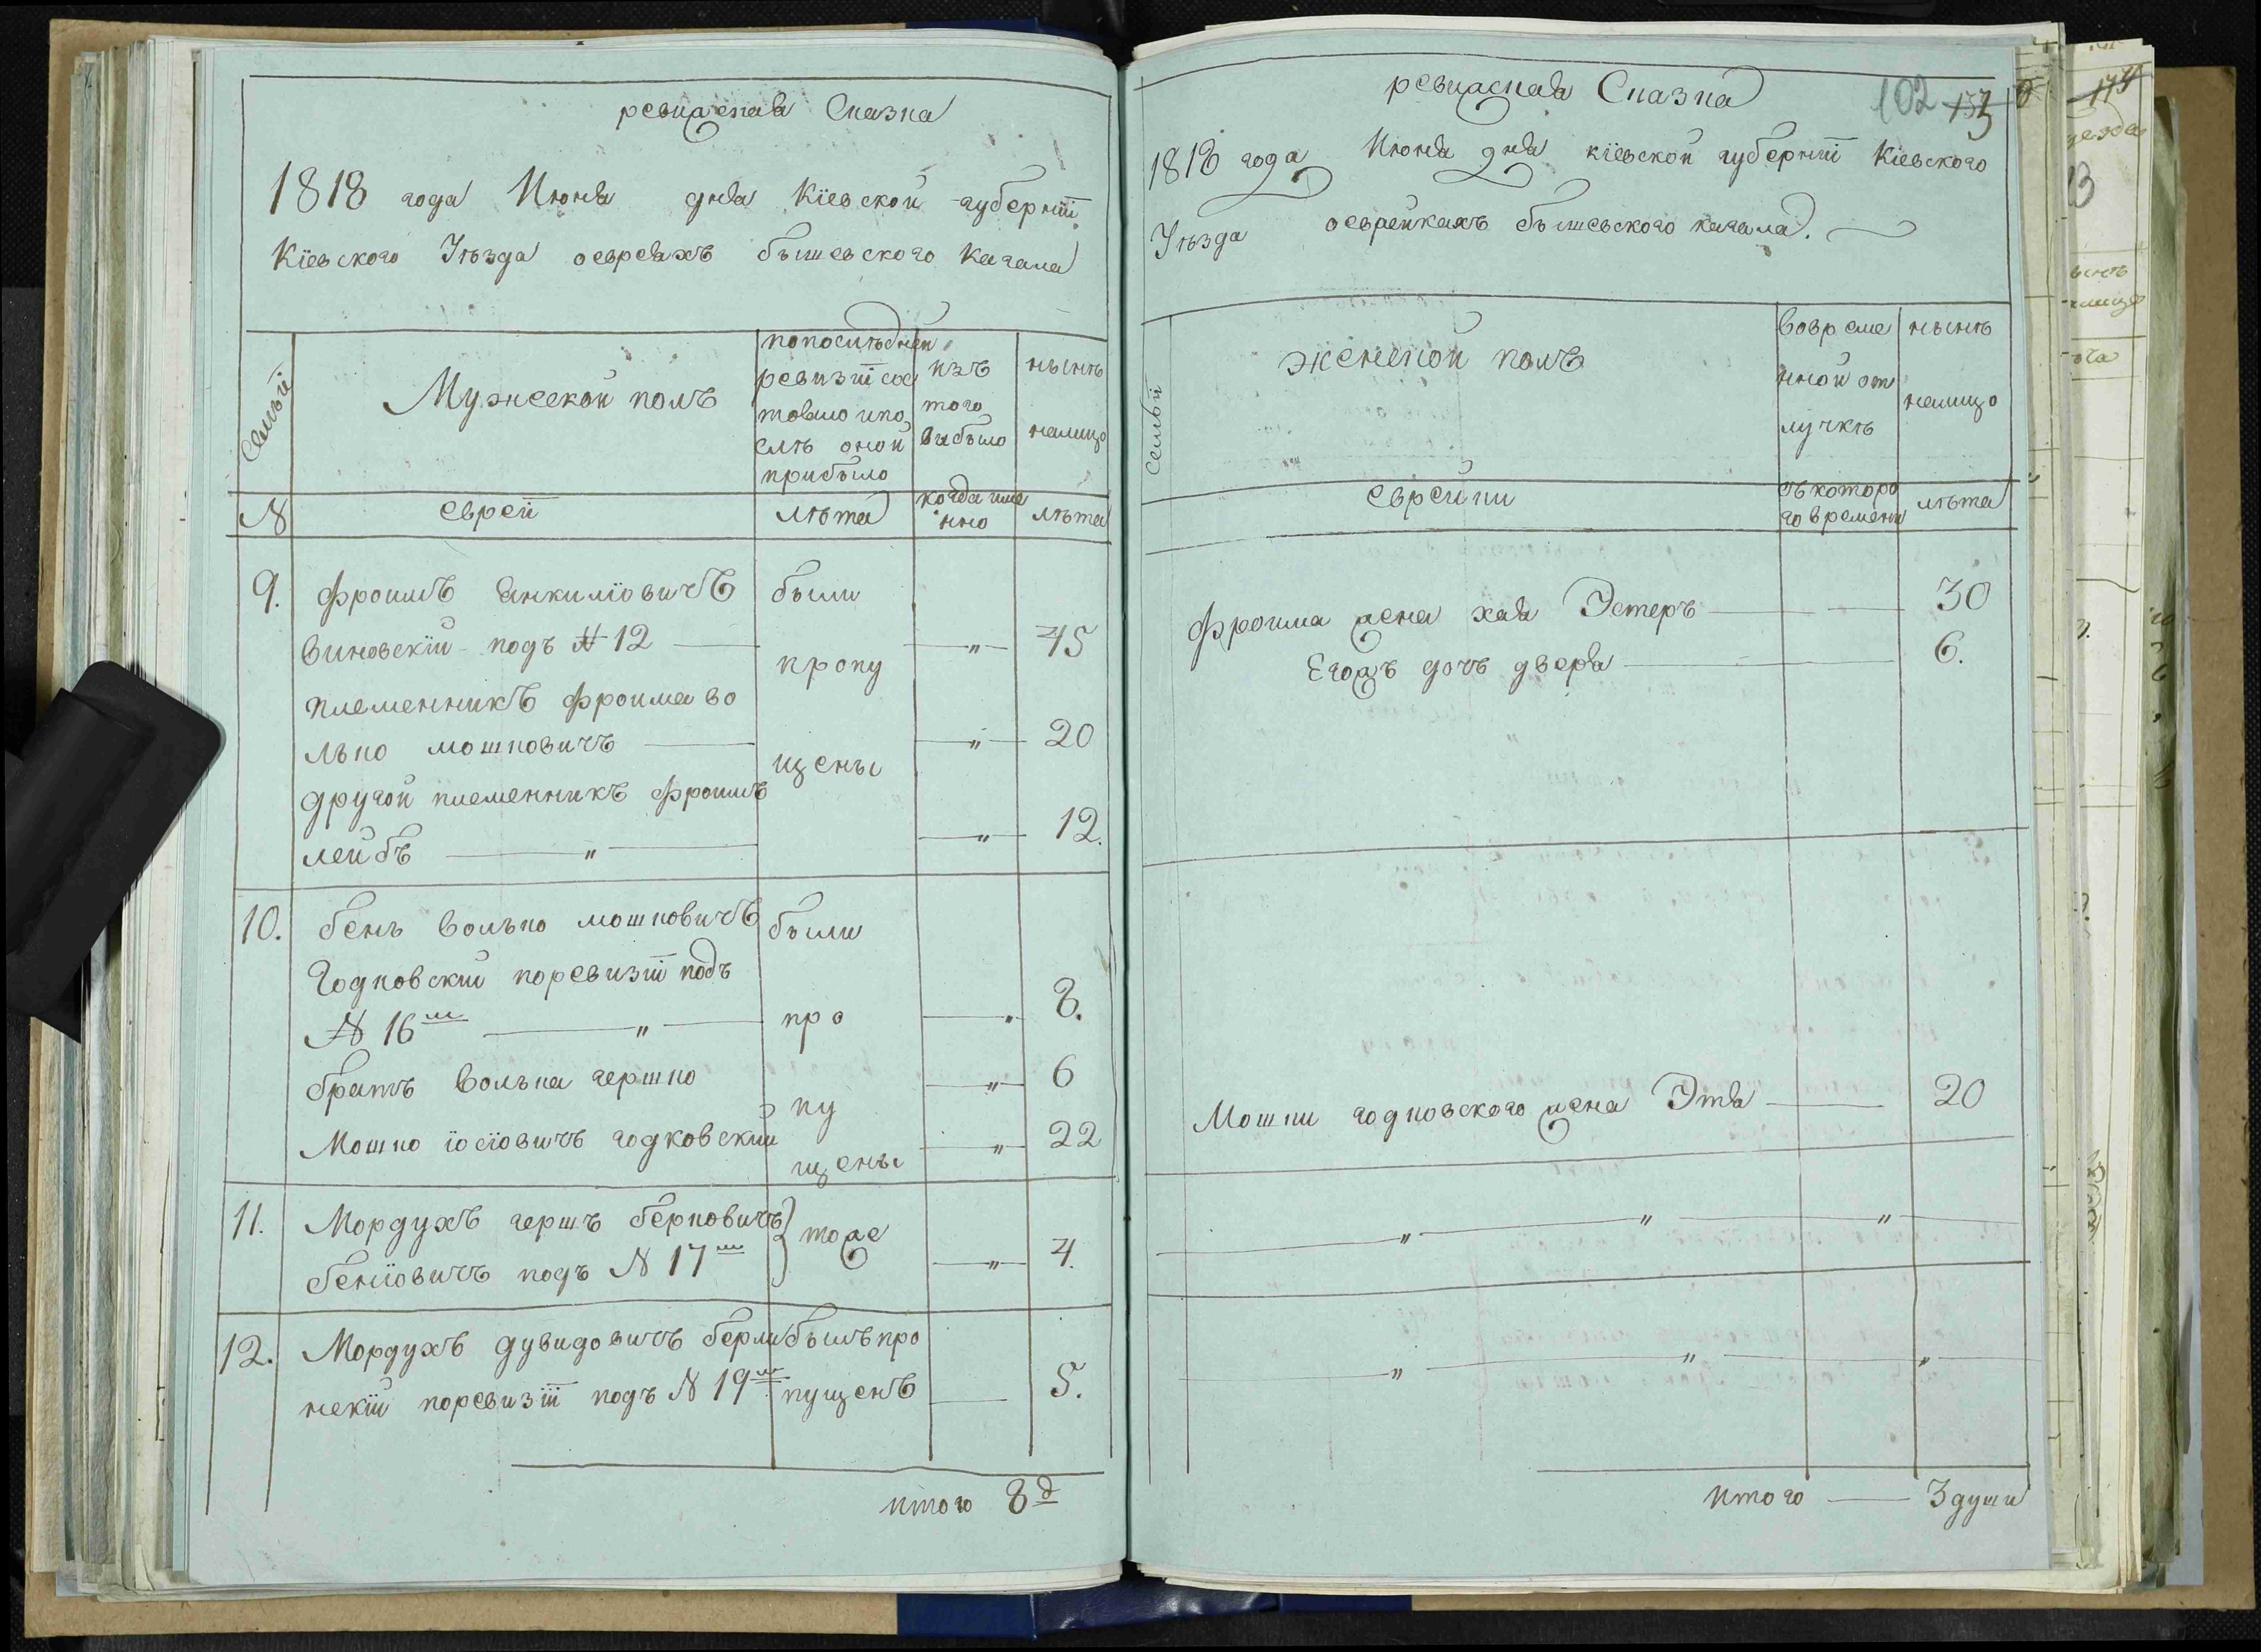 ревизская Сказка
1818 года Июня дня Кіевской губерніи
Кіевского Уѣзда оевреяхъ бышевского кагала
Семьи
Мужеской полъ
попослѣдней
ревизіи сос
тояло ипо
слѣ оной
прибыло
изъ
того
выбыло
нынѣ
налицо
№
евреи
лѣта
когда име
нно
лѣта
9. Фроимъ Янкиліовичъ были
виновскій подъ № 12 — „ — 45
пропу
племенникъ Фроима во
лько мошковичъ — „ — 20
щены
другой племенникъ Фроимъ
лейбъ — „ — „ — 12.
10. бень волько мошковичъ были
Годковскій поревизіи подъ
№ 16м — „ — про — „ 8.
братъ волька гершко — „ — 6
пу
Мошко іосіовичъ годковскій — „ — 22
щены
11. Мордухъ гершъ берковичъ } тоже
беніовичъ подъ № 17м — „ — 4.
12. Мордухъ дувидовичъ берли былъ про
нскій поревизіи подъ № 19м пущенъ — 5.
итого 8д
ревизская Сказка
102 153
1818 года Июня дня кіевской губерніи Кіевского
Уѣзда оеврейкахъ бышевского кагала.
Семьи
женской полъ
вовреме
нной от
лучкѣ
нынѣ
налицо
еврейки
съкоторо
го времени
лѣта
Фроима жена хая Эстеръ — — 30
Егожъ дочь двера — 6.
Мошки годковского жена Этя — 20
„ — „ — „
„ — „ — „
итого — 3 души